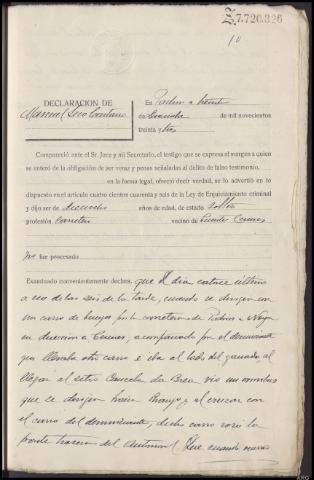 Z.7.720.326
10
DECLARACION DE
Manuel
En Padron a treinta
de Diciembre de mil novecientos
treinta y tres
Compareció ante el Sr. Juez y mi Secretario, el testigo que se expresa al margen a quien
se enteró de la obligación de ser veraz y penas señaladas al delito de falso testimonio.
en la forma legal, ofreció decir verdad, se lo advertió en lo
dispuesto en el artículo cuatro cientos cuarenta y seis de la Ley de Enjuiciamiento criminal
y dijo ser de años de edad, de estado soltero
profesión carretero vecino de Cesures
No fue procesado
Examinado convenientemente declara, que el dia catorce último
a eso de las seis de la tarde, cuando se dirigia con
un carro de bueyes por la carretera de Padron a Noya
en direccion a Cesures, acompañado por el denunciante
que llevaba otro carro e iba al lado del ganado, al
llegar al sitio Cancela da Brea vio un omnibus
que se dirigia hacia y al cruzar con
el carro del denunciante, dicho carro rozó la
parte trasera del Autobus. Que cuando